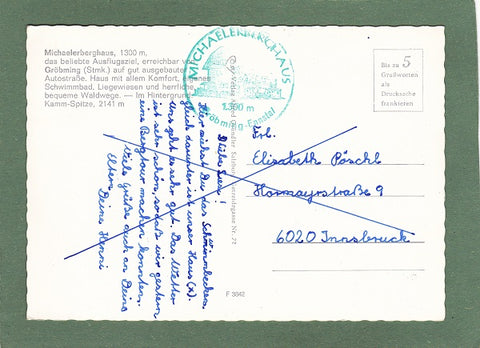 Michaelerberghaus, 1300 m,
das beliebte Ausflugsziel, erreichbar von
Gröbming (Stmk.) auf gut ausgebauter
Autostraße. Haus mit allem Komfort, eigenes
Schwimmbad, Liegewiesen und herrliche,
bequeme Waldwege. — Im Hintergrund
Kamm-Spitze, 2141 m
MICHAELERBERGHAUS
1300 m
Gröbming-Ennstal
Bis zu 5
Grußworten
als
Drucksache
frankieren
Salzburg
Nr. 72
F 3842
Liebe Lisi!
Hier siehst Du das Schwimmbecken.
Gleich daneben ist unser Haus (x).
Uns geht es sehr gut. Das Wetter
ist sehr schön, sodaß wir gestern
eine Bergtour machen konnten.
Viele Grüße auch an Deine
Eltern
Deine
Frl.
Elisabeth Pöschl
Hormayrstraße 9
6020 Innsbruck